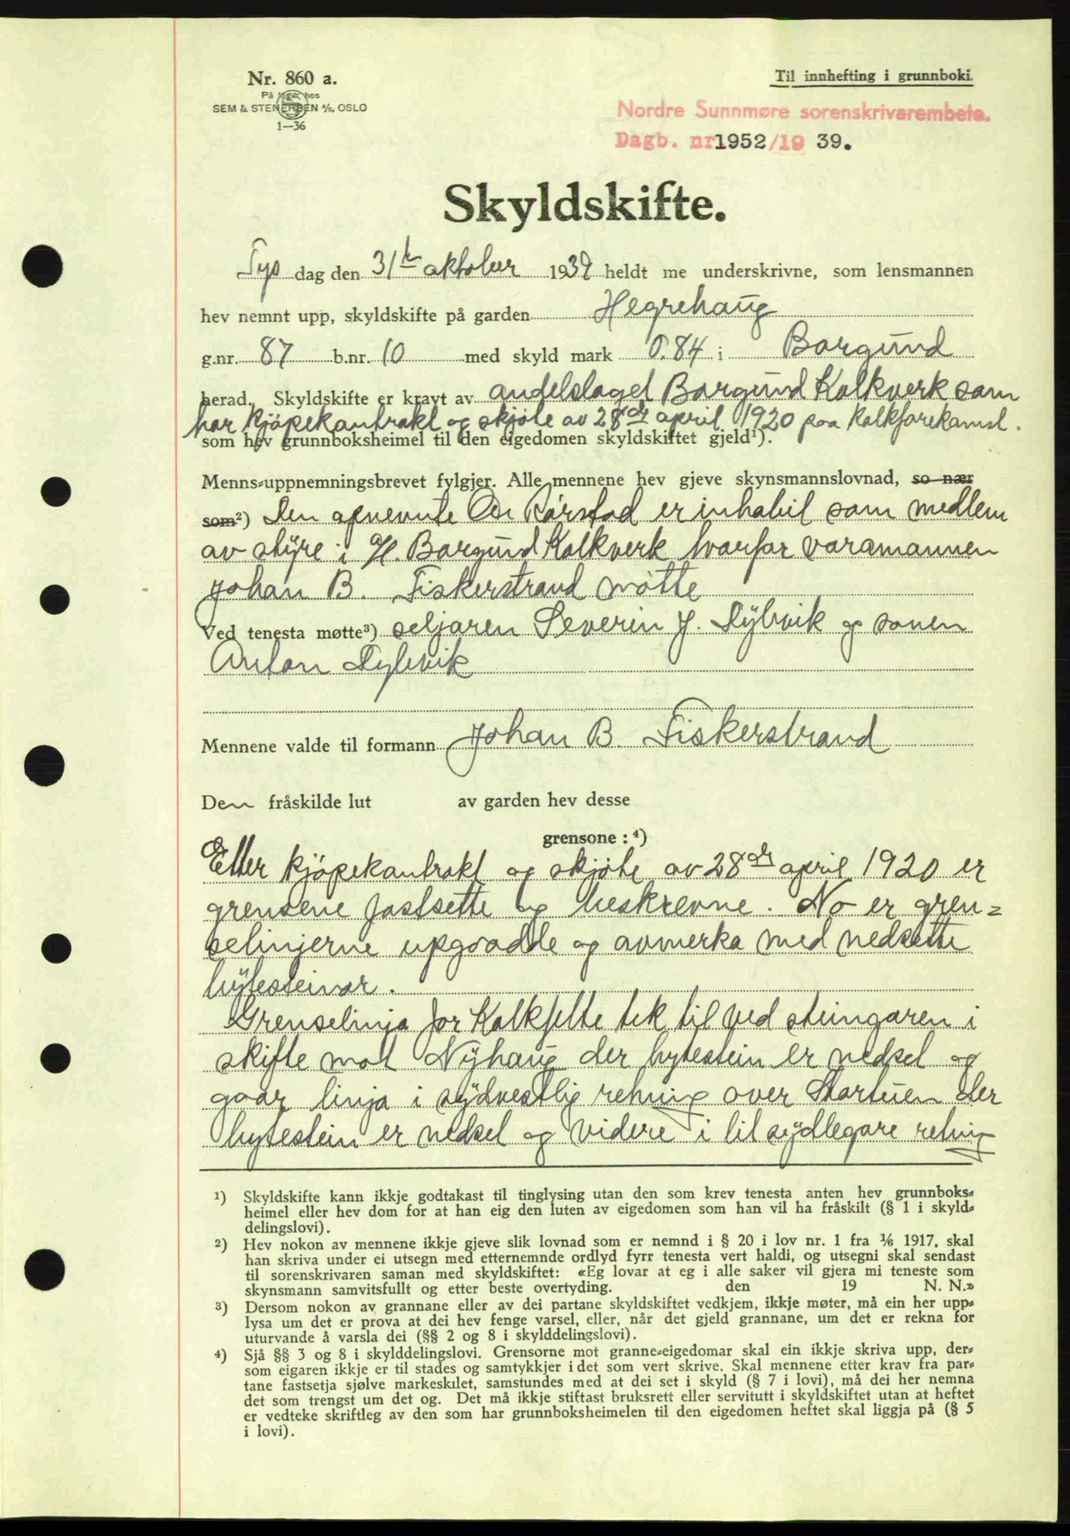 Nr. 860 a.
På lager hos
SEM & STENERSEN A/S, OSLO
1—36
Til innhefting i grunnboki.
Nordre Sunnmøre sorenskrivarembete.
Dagb. nr 1952/19 39.
Skyldskifte.
Tys dag den 31te oktober 1939 heldt me underskrivne, som lensmannen
hev nemnt upp, skyldskifte på garden Hegrehaug
g.nr. 87 b.nr. 10 med skyld mark 0.84 i Borgund
herad. Skyldskifte er kravt av andelslaget Borgund Kalkverk som
har kjøpekontrakt og skjøte av 28de april 1920 paa Kalkforekomst.
som hev grunnboksheimel til den eigedomen skyldskiftet gjeld¹).
Menns-uppnemningsbrevet fylgjer. Alle mennene hev gjeve skynsmannslovnad, so nær
som²) Den opnevnte Ole er inhabil som medlem
av styre i A/L. Borgund Kalkverk hvorfor varamannen
Johan B. Fiskerstrand møtte
Ved tenesta møtte³) seljaren Severin J. Dybvik og sonen
Anton Dybvik
Mennene valde til formann Johan B. Fiskerstrand
Den fråskilde lut av garden hev desse
grensone : ⁴)
Etter kjøpekontrakt og skjøte av 28de april 1920 er
grensene fastsette og beskrevne. No er gren=
selinjerne upgaadde og avmerka med nedsette
bytesteinar.
Grenselinja for Kalkfelte tek til ved steingaren i
skifte mot Nyhaug der bytestein er nedset og
gaar linja i sydvestlig retning over der
bytestein er nedset og videre i lit sydlegare retning
¹) Skyldskifte kann ikkje godtakast til tinglysing utan den som krev tenesta anten hev grunnboks-
heimel eller hev dom for at han eig den luten av eigedomen som han vil ha fråskilt (§ 1 i skyld-
delingslovi).
²) Hev nokon av mennene ikkje gjeve slik lovnad som er nemnd i § 20 i lov nr. 1 fra 1/6 1917, skal
han skriva under ei utsegn med etternemnde ordlyd fyrr tenesta vert haldi, og utsegni skal sendast
til sorenskrivaren saman med skyldskiftet: «Eg lovar at eg i alle saker vil gjera mi teneste som
skynsmann samvitsfullt og etter beste overtyding. den 19 N. N.»
³) Dersom nokon av grannane eller av dei partane skyldskiftet vedkjem, ikkje møter, må ein her upp-
lysa um det er prova at dei hev fenge varsel, eller, når det gjeld grannane, um det er rekna for
uturvande å varsla dei (§§ 2 og 8 i skylddelingslovi).
⁴) Sjå §§ 3 og 8 i skylddelingslovi. Grensorne mot granne-eigedomar skal ein ikkje skriva upp, der-
som eigaren ikkje er til stades og samtykkjer i det som vert skrive. Skal mennene etter krav fra par-
tane fastsetja sjølve markeskilet, samstundes med at dei set i skyld (§ 7 i lovi), må dei her nemna
det som trengst um det og. Det må ikkje stiftast bruksrett eller servitutt i skyldskiftet utan at heftet
er vedteke skriftleg av den som har grunnboksheimelen til den eigedomen heftet skal liggja på (§ 5
i lovi).